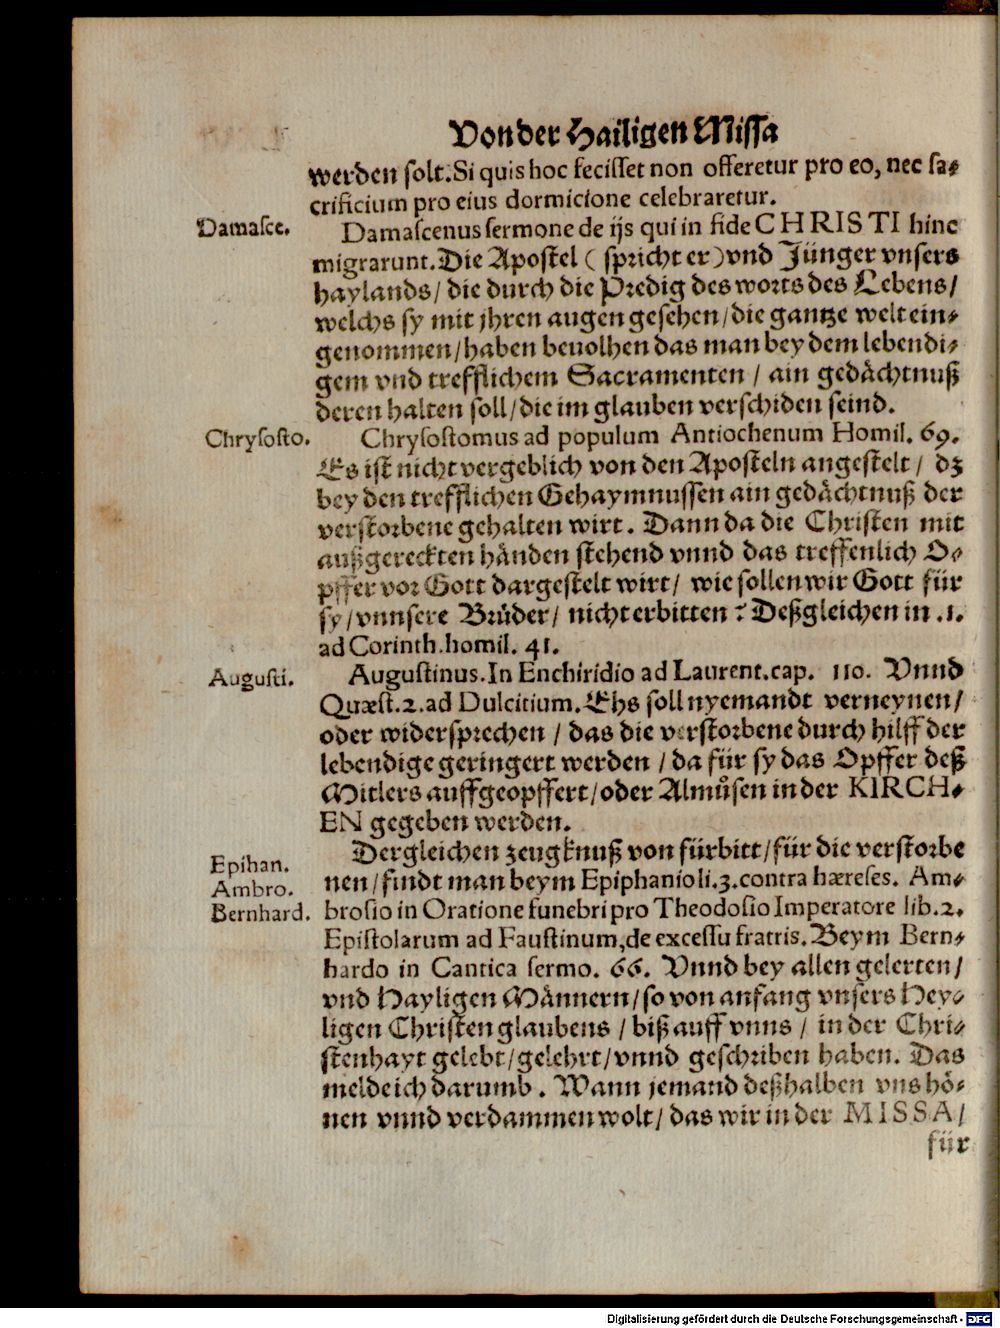 Von der Hailigen Missa
werden solt. Si quis hoc fecisset non offeretur pro eo, nec sa⸗
crificium pro eius dormicione celebraretur.
Damasce.
Damascenus sermone de ijs qui in fide CHRISTI hinc
migrarunt. Die Apostel ( spricht er ) vnd Jünger vnsers
haylands / die durch die Predig des worts des Lebens /
welchs sy mit jhren augen gesehen / die gantze welt ein⸗
genommen / haben beuolhen das man bey dem lebendi⸗
gem vnd trefflichem Sacramenten / ain gedächtnuß
deren halten soll / die im glauben verschiden seind.
Chrysosto.
Chrysostomus ad populum Antiochenum Homil. 69.
Es ist nicht vergeblich von den Aposteln angestelt / dz
bey den trefflichen Gehaymnussen ain gedächtnuß der
verstorbene gehalten wirt. Dann da die Christen mit
außgereckten händen stehend vnnd das treffenlich O⸗
pffer vor Gott dargestelt wirt / wie sollen wir Gott für
sy / vnnsere Brůder / nicht erbitten? Deßgleichen in .1.
ad Corinth. homil. 41.
Augusti.
Augustinus. In Enchiridio ad Laurent. cap. 110. Vnnd
Quæst. 2. ad Dulcitium. Ehs soll nyemandt verneynen /
oder widersprechen / das die verstorbene durch hilff der
lebendige geringert werden / da für sy das Opffer deß
Mitlers auffgeopffert / oder Almůsen in der KIRCH⸗
EN gegeben werden.
Dergleichen zeugknuß von fürbitt / für die verstorbe
Epihan.
Ambro.
Bernhard.
nen / findt man beym Epiphanio li. 3. contra hæreses. Am⸗
brosio in Oratione funebri pro Theodosio Imperatore lib. 2.
Epistolarum ad Faustinum, de excessu fratris. Beym Bern⸗
hardo in Cantica sermo. 66. Vnnd bey allen gelerten /
vnd Hayligen Männern / so von anfang vnsers Hey⸗
ligen Christen glaubens / biß auff vnns / in der Chri⸗
stenhayt gelebt / gelehrt / vnnd geschriben haben. Das
melde ich darumb. Wann jemand deßhalben vns hö⸗
nen vnnd verdammen wolt / das wir in der MISSA /
für
Digitalisierung gefördert durch die Deutsche Forschungsgemeinschaft - DFG